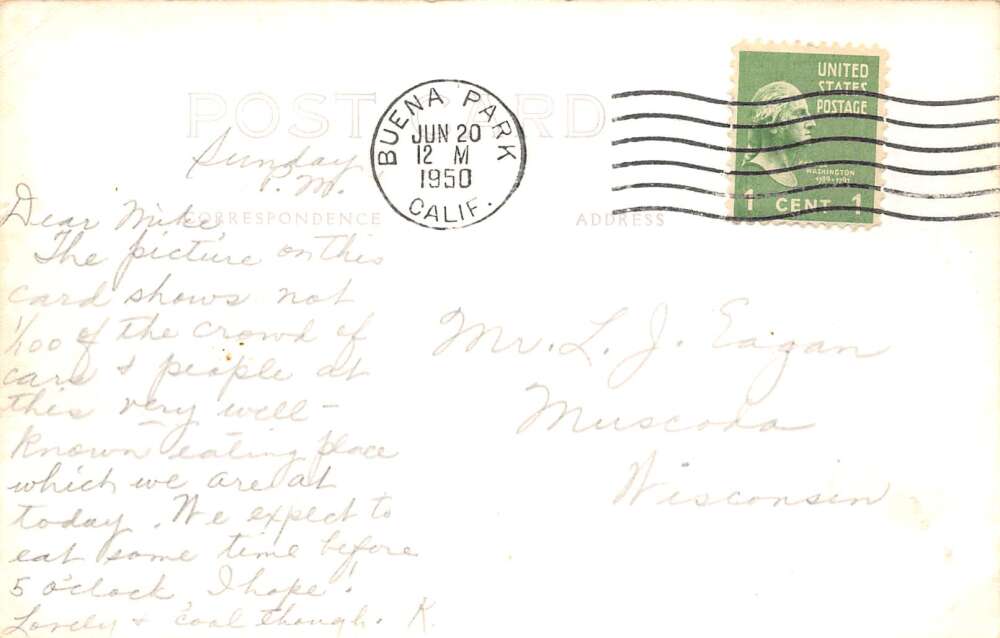 POST CARD
BUENA PARK
JUN 20
12 M
1950
CALIF.
UNITED
STATES
POSTAGE
WASHINGTON
1789-1797
1 CENT 1
CORRESPONDENCE
ADDRESS
Sunday
P.M.
Dear Mike,
The picture on this
card shows not
1/100 of the crowd of
cars & people at
this very well-
known eating place
which we are at
today. We expect to
eat some time before
5 o'clock, I hope!
Lovely & cool though. K.
Mr. L. J. Eagan
Muscoda
Wisconsin